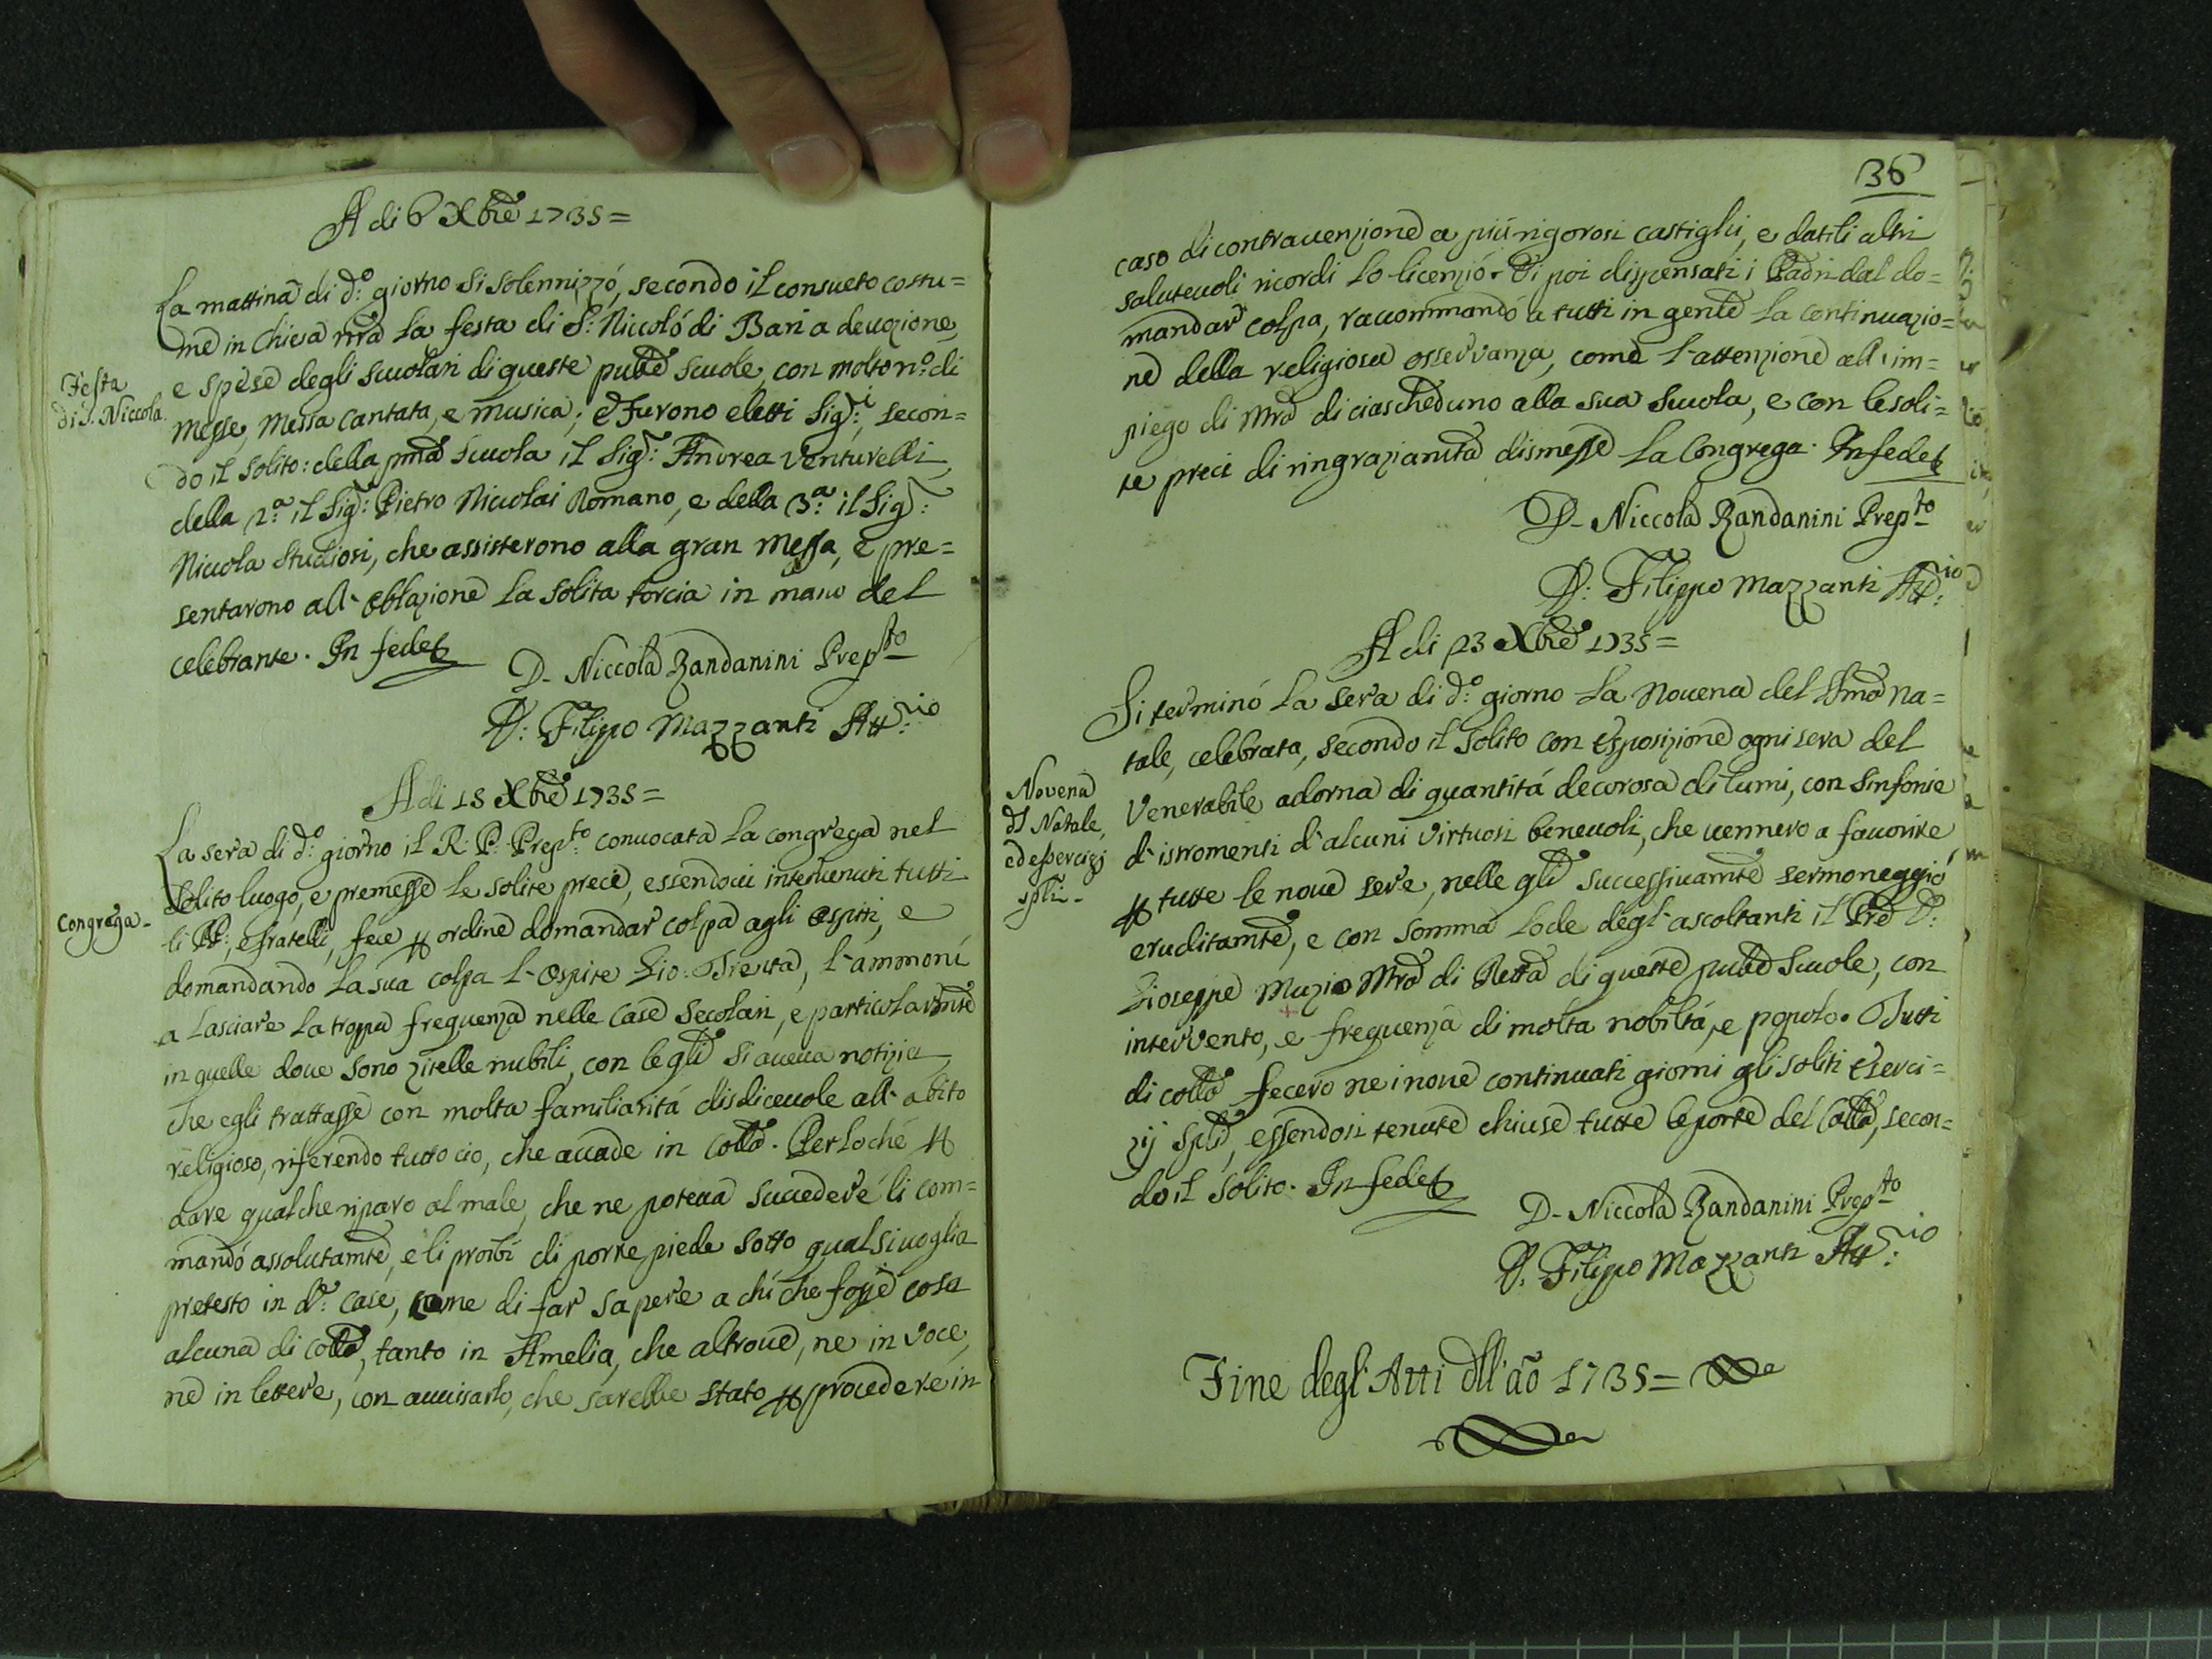 A di 6 Xbre 1735=
La mattina di do: giorno si solennizzó, secondo il consueto costu=
me in chiesa nra la festa di S: Niccoló di Bari a deuozione,
e spese degli scuolari di queste pubbe scuole, con molto no: di
Festa
di S. Niccola.
Messe, Messa Cantata, e musica; e furono eletti Sigri:, secon=
do il solito: della pma scuola il Sigr: Andrea Venturelli
della 2a: il Sigr: Pietro Niccolai Romano, e della 3a: il Sigr:
Niccola Studiosi, che assisterono alla gran Messa, e pre=
sentarono all'oblazione la solita torcia in mano del
celebrante. In fede
D- Niccola Zandanini Prepto
D: Filippo Mazzanti Attrio:
A di 15 Xbre 1735=
La sera di do: giorno il R: P: Prepto: conuocata la congrega nel
solito luogo, e premesse le solite preci, essendoui interuenuti tutti
Congrega-
li PP:, e fratelli, fece per ordine domandar colpa agli Ospiti, e
domandando la sua colpa l'Ospite Gio: Trenta, l'ammoní
a lasciare la troppa frequenza nelle case secolari, e particolarmte
in quelle doue sono zitelle nubili, con le qli si aueua notizia
che egli trattasse con molta familiaritá disdiceuole all'abito
religioso, riferendo tutto ció, che accade in Collo. Perloché per
dare qualche riparo al male, che ne poteua succedere li com=
mandó assolutamte, e li proibí di porre piede sotto qualsiuoglia
pretesto in de: case, come di far sapere a chi che fosse cosa
alcuna di Collo, tanto in Amelia, che altroue, ne in voce,
ne in lettere, con auuisarlo, che sarebbe stato per procedere in
36
caso di contrauenzione a piú rigorosi castighi, e datili altri
saluteuoli ricordi lo licenzió. Di poi dispensati i Padri dal do=
mandar colpa, raccommandó a tutti in genle la continuazio=
ne della religiosa osseruanza, come l'attenzione all'im=
piego di Mro di ciascheduno alla sua scuola, e con le soli=
te preci di ringraziamto dismesse la Congrega. In fede
D- Niccola Zandanini Prepto
D: Filippo Mazzanti Attrio:
A di 23 Xbre 1735=
Si terminó la sera di do: giorno la Nouena del SSmo Na=
tale, celebrata, secondo il solito con Esposizione ogni sera del
Novena
dl Natale,
ed essercizj
spli-
Venerabile adorna di quantitá decorosa di lumi, con sinfonie
d'istromenti d'alcuni virtuosi beneuoli, che uennero a fauorire
per tutte le noue sere, nelle qli successiuamte sermoneggió
eruditamte, e con somma lode degl'ascoltanti il Pre D:
Gioseppe Muzio Mro di Retta di queste pubbe Scuole, con
intervento, e frequenza di molta nobiltá, e popolo. Tutti
di collo fecero ne i noue continuati giorni gli soliti Eserci=
zij spli, essendosi tenute chiuse tutte le porte del Collo, secon=
do il solito. In fede
D- Niccola Zandanini Prepto
D: Filippo Mazzanti Attrio:
Fine degl'Atti dll'ão 1735=